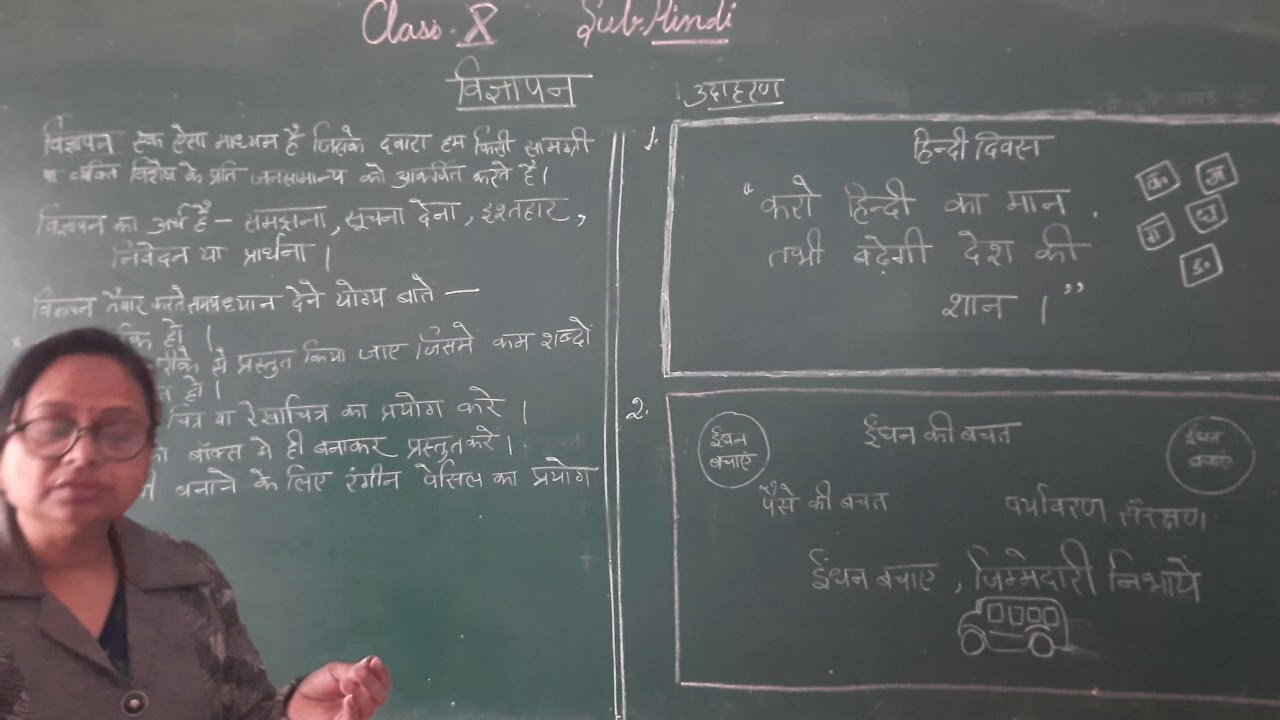 Class - X Sub. Hindi
विज्ञापन
विज्ञापन एक ऐसा माध्यम है जिसके दवारा हम किसी सामग्री
व्यक्ति विशेष के प्रति जनसामान्य को आकर्षित करते हैं।
विज्ञापन का अर्थ है – समझाना, सूचना देना, इश्तहार,
निवेदन या प्रार्थना।
विज्ञापन तैयार करते समय ध्यान देने योग्य बाते —
हो।
से प्रस्तुत किया जाए जिसमे कम शब्दों
हो।
चित्र वा रेखाचित्र का प्रयोग करे।
बॉक्स मे ही बनाकर प्रस्तुत करे।
बनाने के लिए रंगीन पेंसिल का प्रयोग
उदाहरण
1.
हिन्दी दिवस
“करो हिन्दी का मान
तभी बढ़ेगी देश की
शान।”
क ख
ग घ
ङ
2.
ईंधन की बचत
ईंधन
बचाएं
ईंधन
बचाएं
पैसे की बचत पर्यावरण सँरक्षण
ईंधन बचाए, जिम्मेदारी निभायें